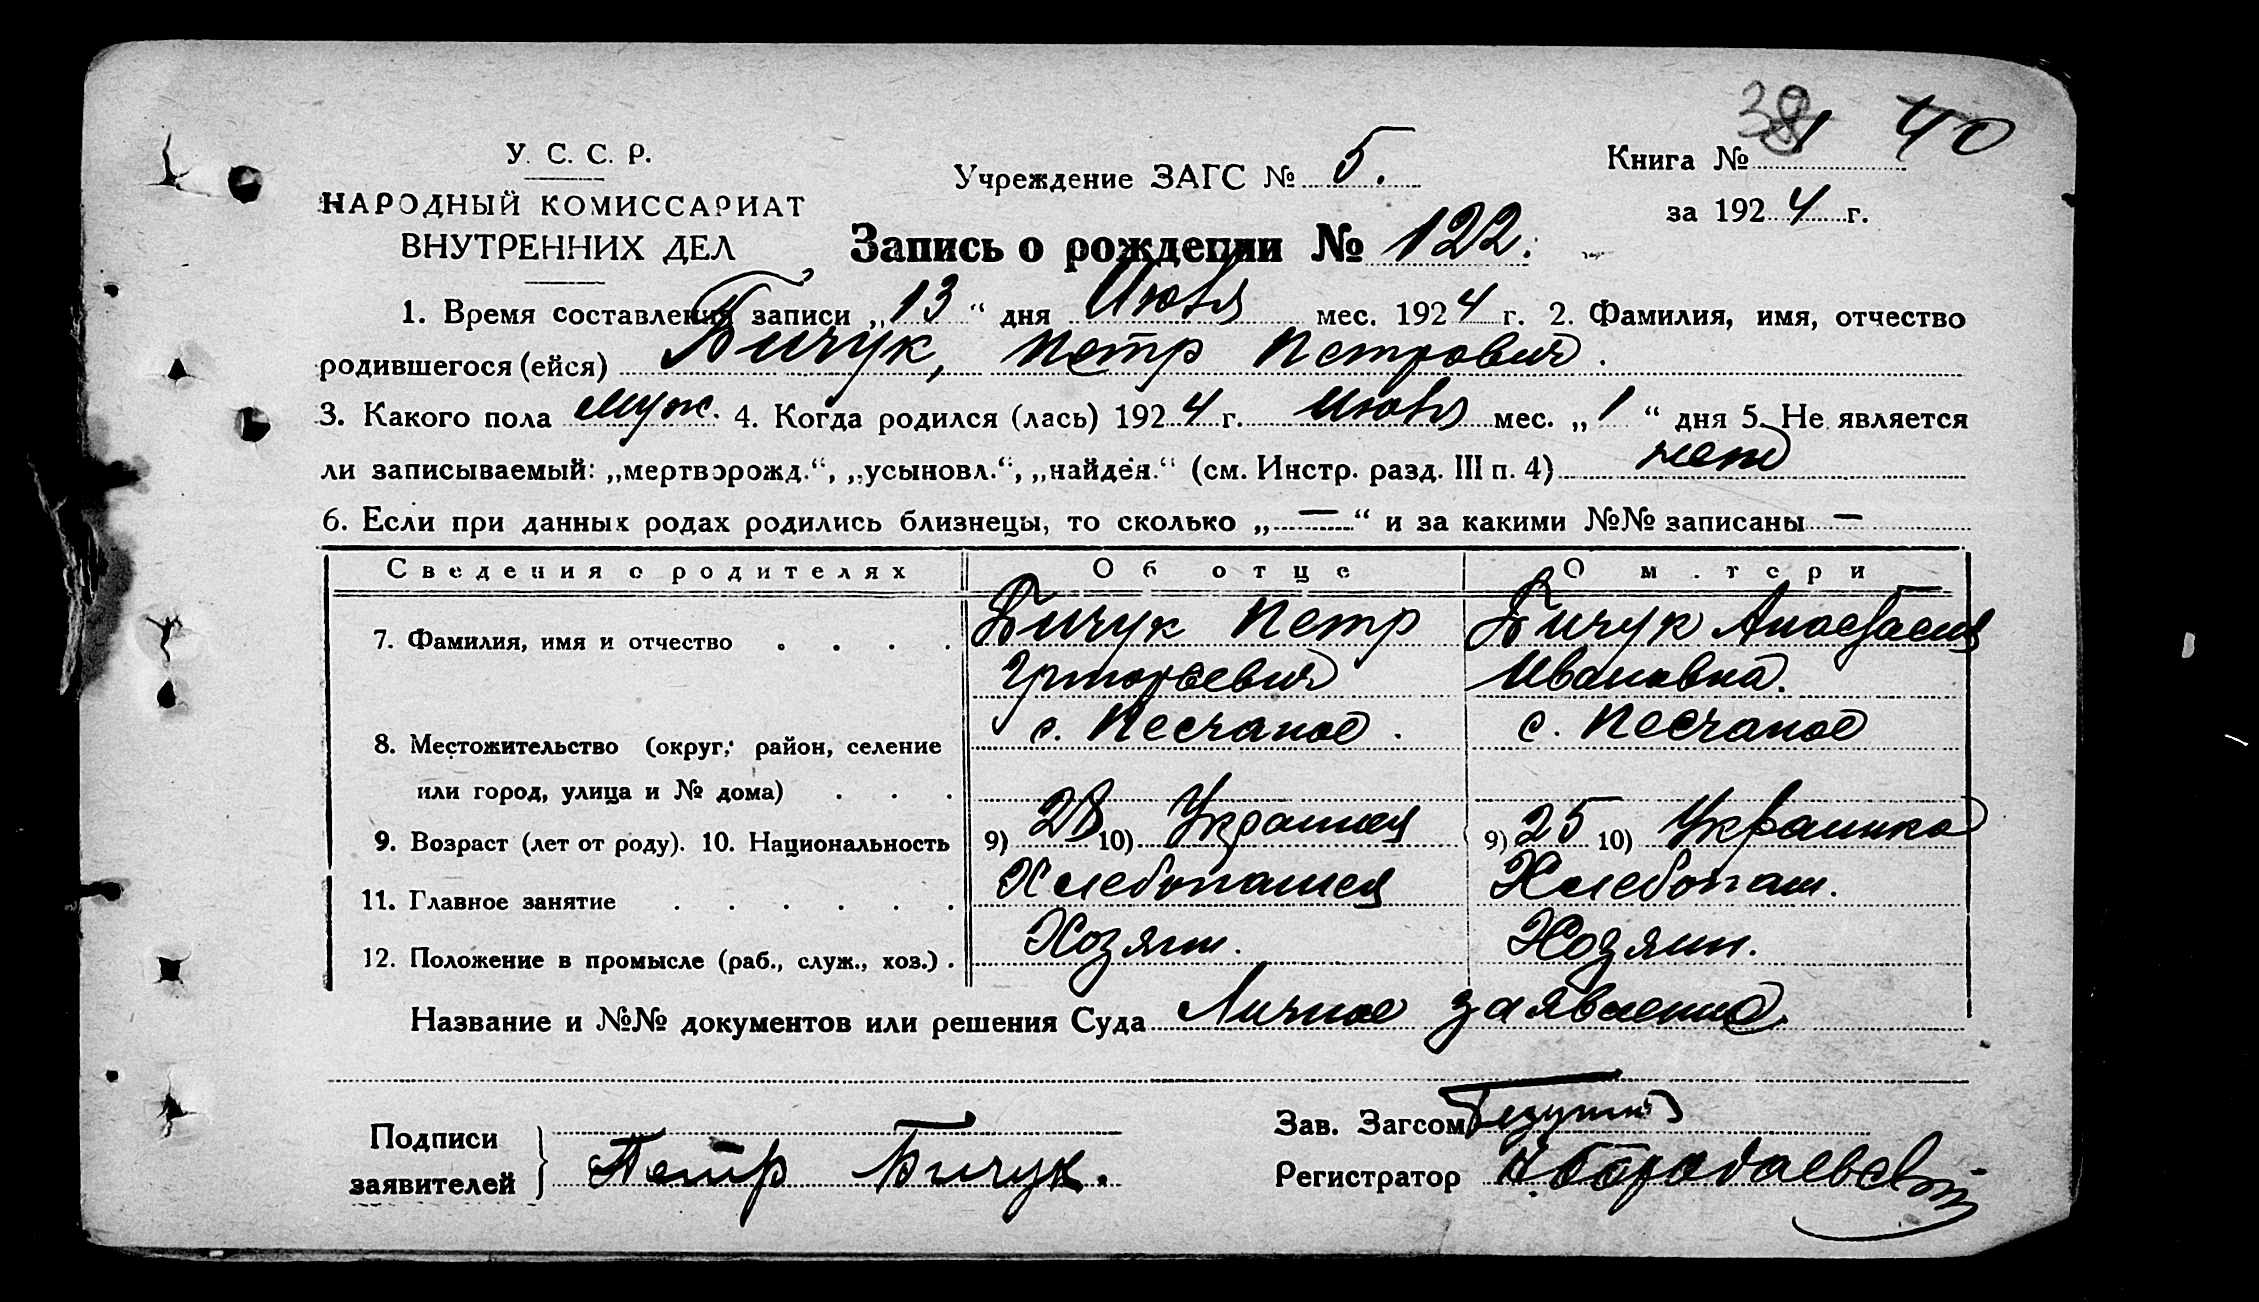 38 40
У. С. С. Р.
Учреждение ЗАГС № 5.
Книга № 1
НАРОДНЫЙ КОМИССАРИАТ
ВНУТРЕННИХ ДЕЛ
за 1924 г.
Запись о рождении № 122.
1. Время составления записи „13“ дня Июля мес. 1924 г. 2. Фамилия, имя, отчество
родившегося (ейся) Бичук, Петр Петрович.
3. Какого пола муж. 4. Когда родился (лась) 1924 г. Июля мес. „1“ дня 5. Не является
ли записываемый: „мертворожд.“, „усыновл.“, „найден.“ (см. Инстр. разд. III п. 4) нет
6. Если при данных родах родились близнецы, то сколько „—“ и за какими №№ записаны —
Сведения о родителях Об отце О матери
7. Фамилия, имя и отчество . . . . Бичук Петр Бичук Анастасия
Григорьевич Ивановна.
8. Местожительство (округ, район, селение с. Песчаное. с. Песчаное
или город, улица и № дома) . . .
9. Возраст (лет от роду). 10. Национальность 9) 28 10) Украинец 9) 25 10) Украинка
11. Главное занятие . . . . . . Хлебопашец Хлебопаш.
12. Положение в промысле (раб., служ., хоз.) . Хозяин. Хозяин.
Название и №№ документов или решения Суда Личное заявление.
Подписи
заявителей } Петр Бичук.
Зав. Загсом
Регистратор